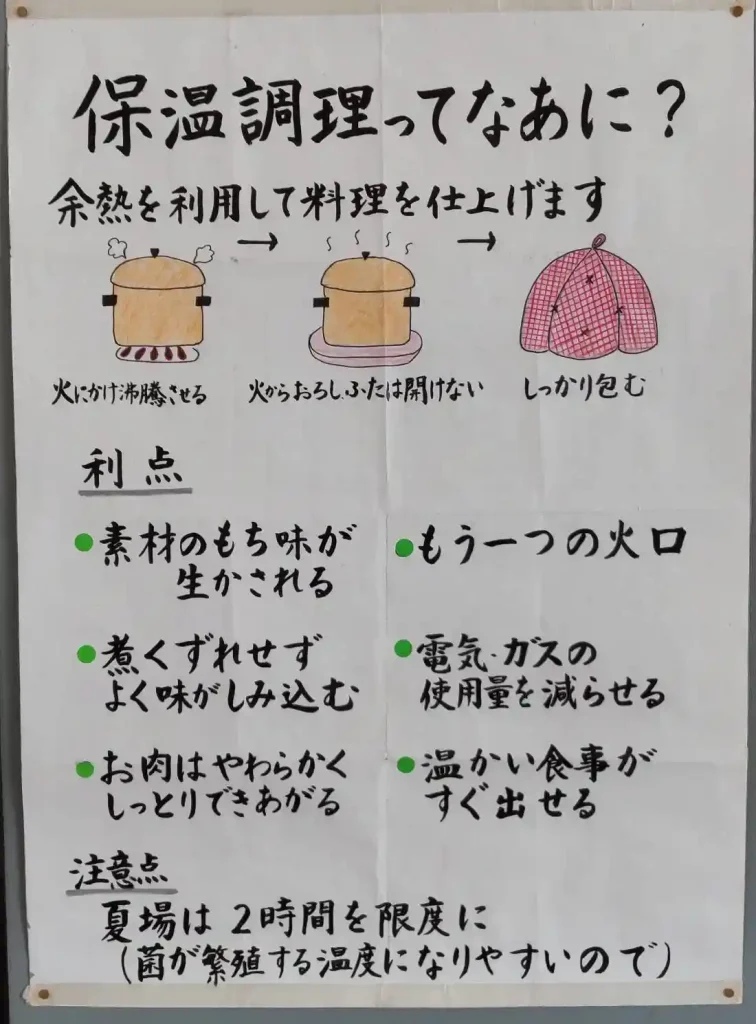 保温調理ってなあに？
余熱を利用して料理を仕上げます
→ →
火にかけ沸騰させる
火からおろし、ふたは開けない
しっかり包む
利点
●素材のもち味が
生かされる
●煮くずれせず
よく味がしみ込む
●お肉はやわらかく
しっとりできあがる
●もう一つの火口
●電気・ガスの
使用量を減らせる
●温かい食事が
すぐ出せる
注意点
夏場は2時間を限度に
(菌が繁殖する温度になりやすいので)